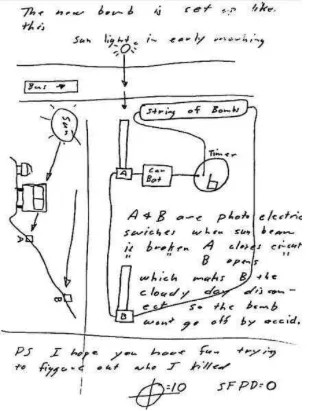 The new bomb is set up like
this
Sun light in early morning
Bus
Sun
String of Bombs
Timer
A
Car
Bat
A
B
A & B are photo electric
swiches when sun beam
is broken A closes circut
" " B opens
which makes B the
cloudy day discon-
ect so the bomb
wont go off by accid.
B
PS I hope you have fun trying
to figgure out who I killed
=10 SFPD=0